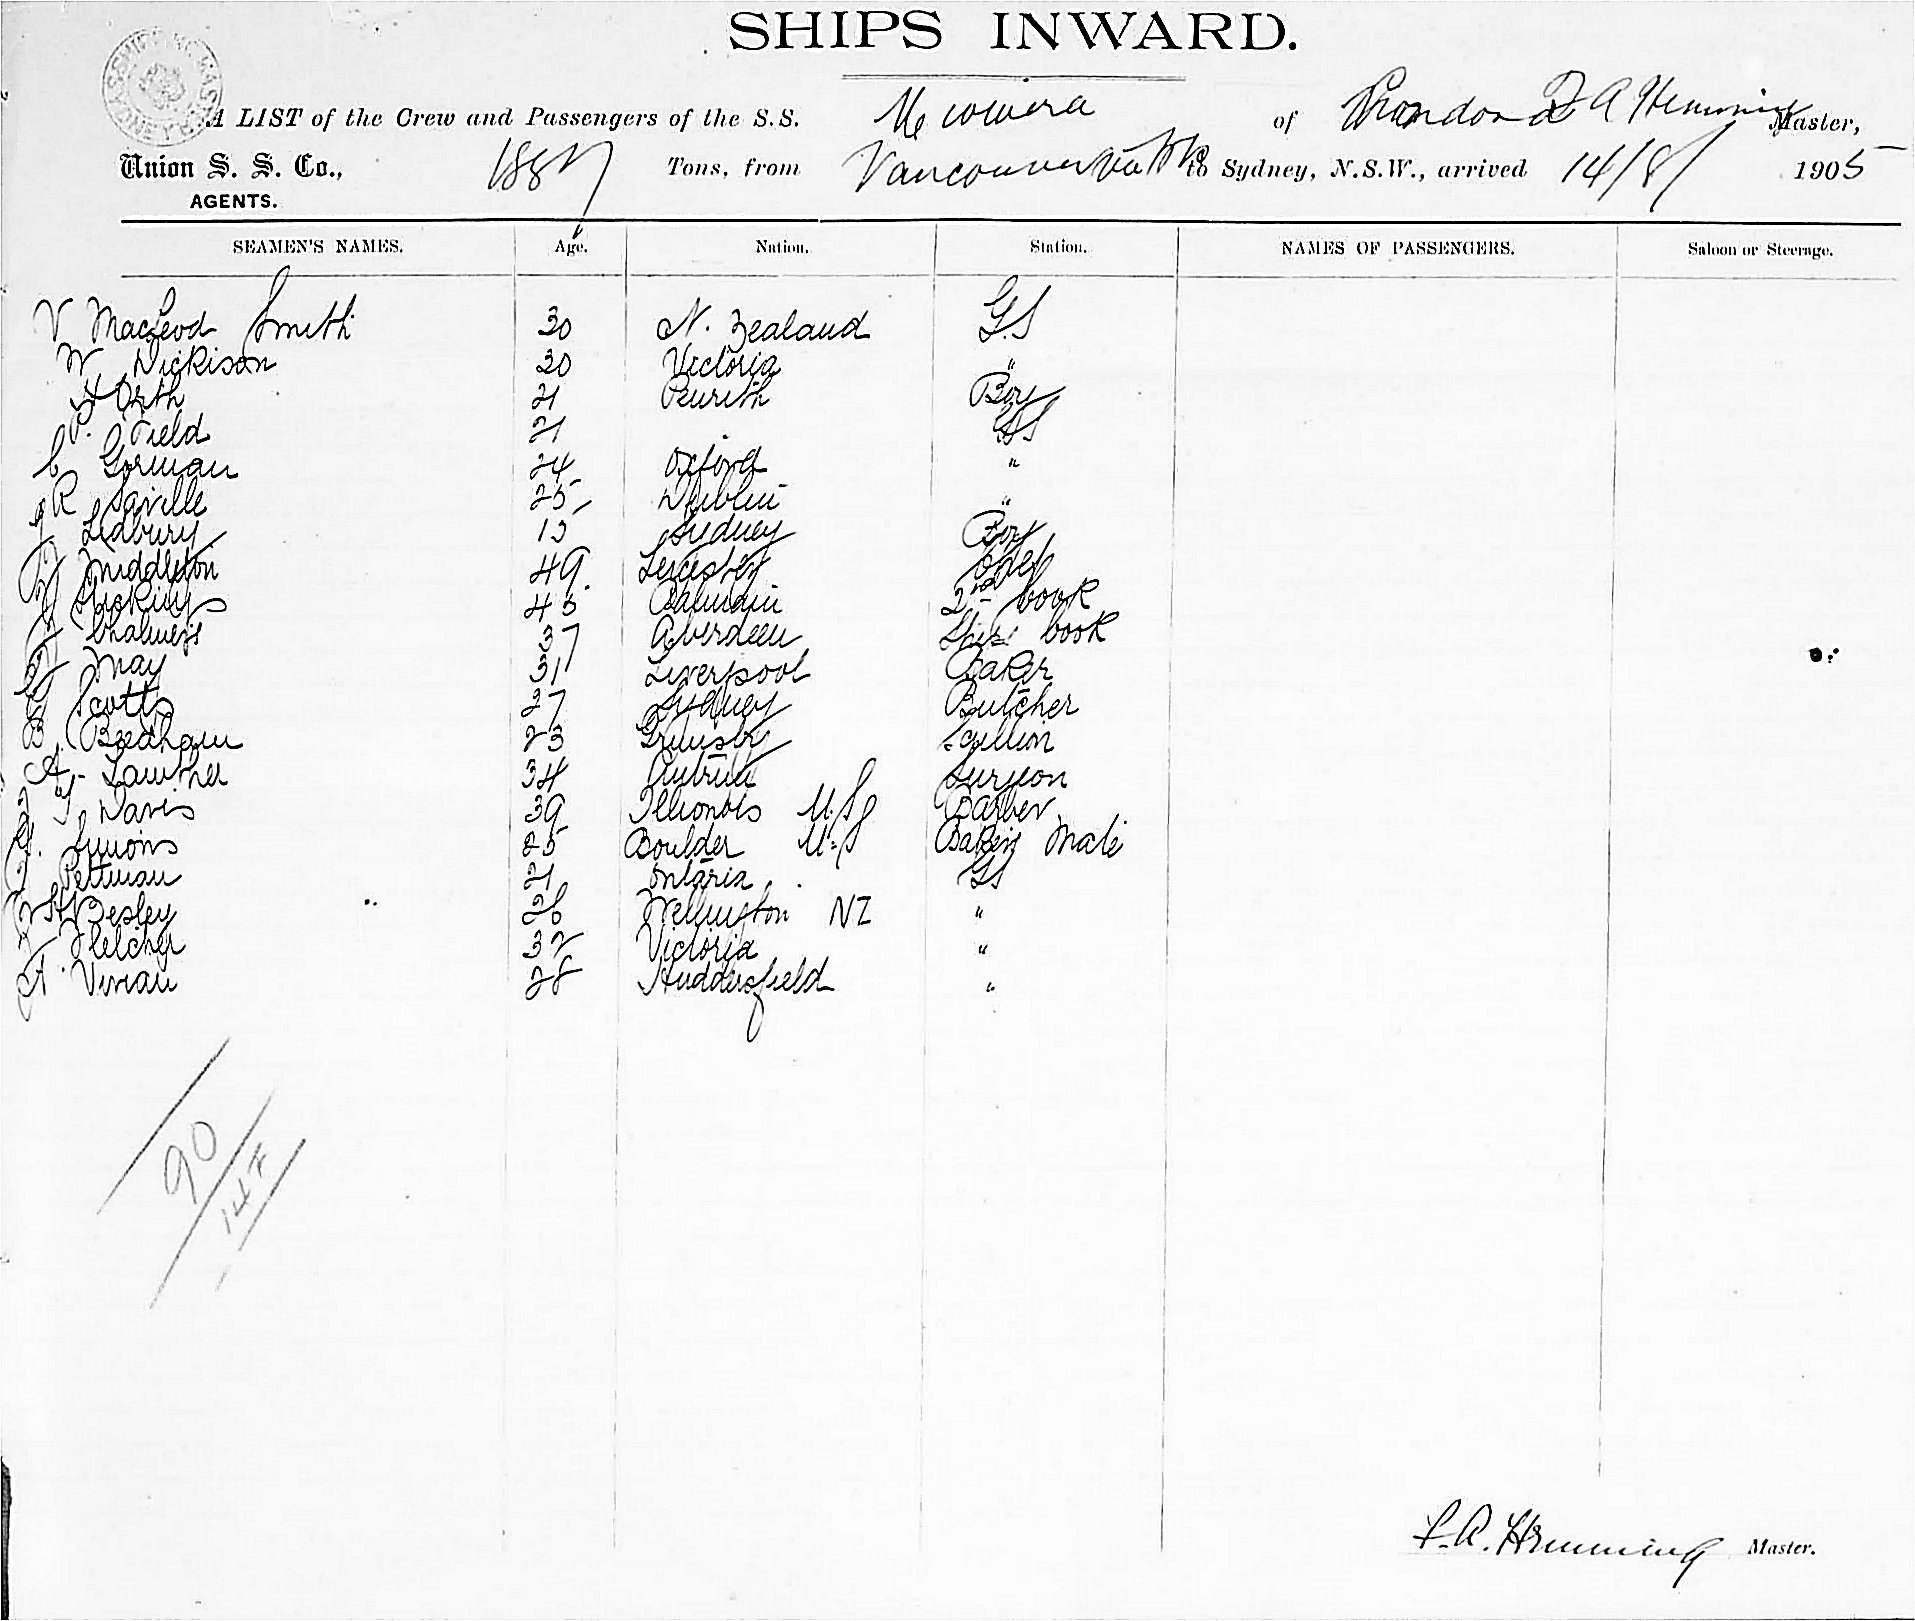 SHIPS INWARD.
A LIST of the Crew and Passengers of the S.S. Miowera of F A Hemming Master,
Union S. S. Co., Tons, from Vancouver via to Sydney, N.S.W., arrived 14/8/ 1905
AGENTS.
SEAMEN'S NAMES. Age. Nation. Station. NAMES OF PASSENGERS. Saloon or Steerage.
V MacLeod Smith 30 N. Zealand G.S
W Dickison 30 Victoria "
Orth 21 Penrith Boy
P. Field 21 GS
C Gorman 24 Oxford "
R Saville 25 Dublin "
Ledbury 15 Sydney Boy
Middleton 49 Leicester Chef
45 Balmain 2nd Cook
Chalmers 37 Aberdeen Cook
May 31 Liverpool Baker
Scott 27 Sydney Butcher
B. Beedham 23 Grimsby Scullion
A. Lawther 34 Antrim Surgeon
T Davis 39 Illionois U.S Barber
Simons 25 Boulder U.S Bakers Mate
Pettman 21 Ontario GS
Besley 26 Wellington NZ "
Fletcher 32 Victoria "
A. Vivian 28 Huddersfield "
90
147
F. A. Hemming Master.